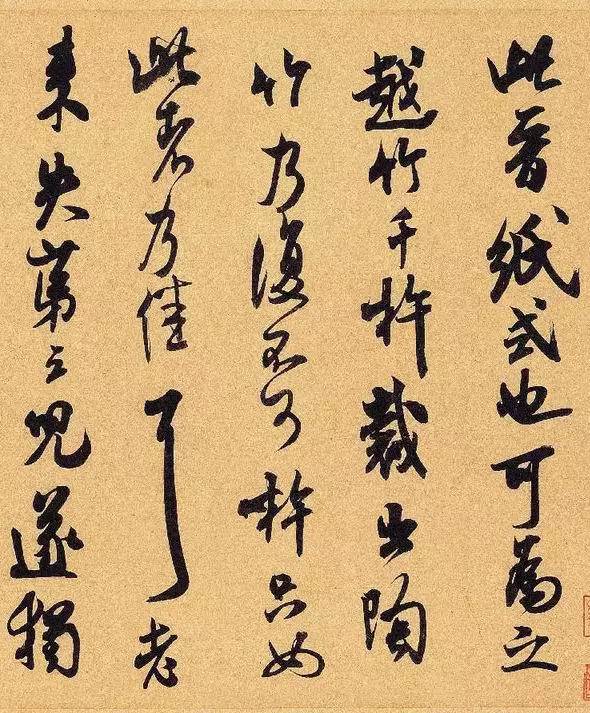 此晉紙式也可為之
越竹千杵裁出陶
竹乃復不可杵只如
此者乃佳耳老
来失第三兒遂獨